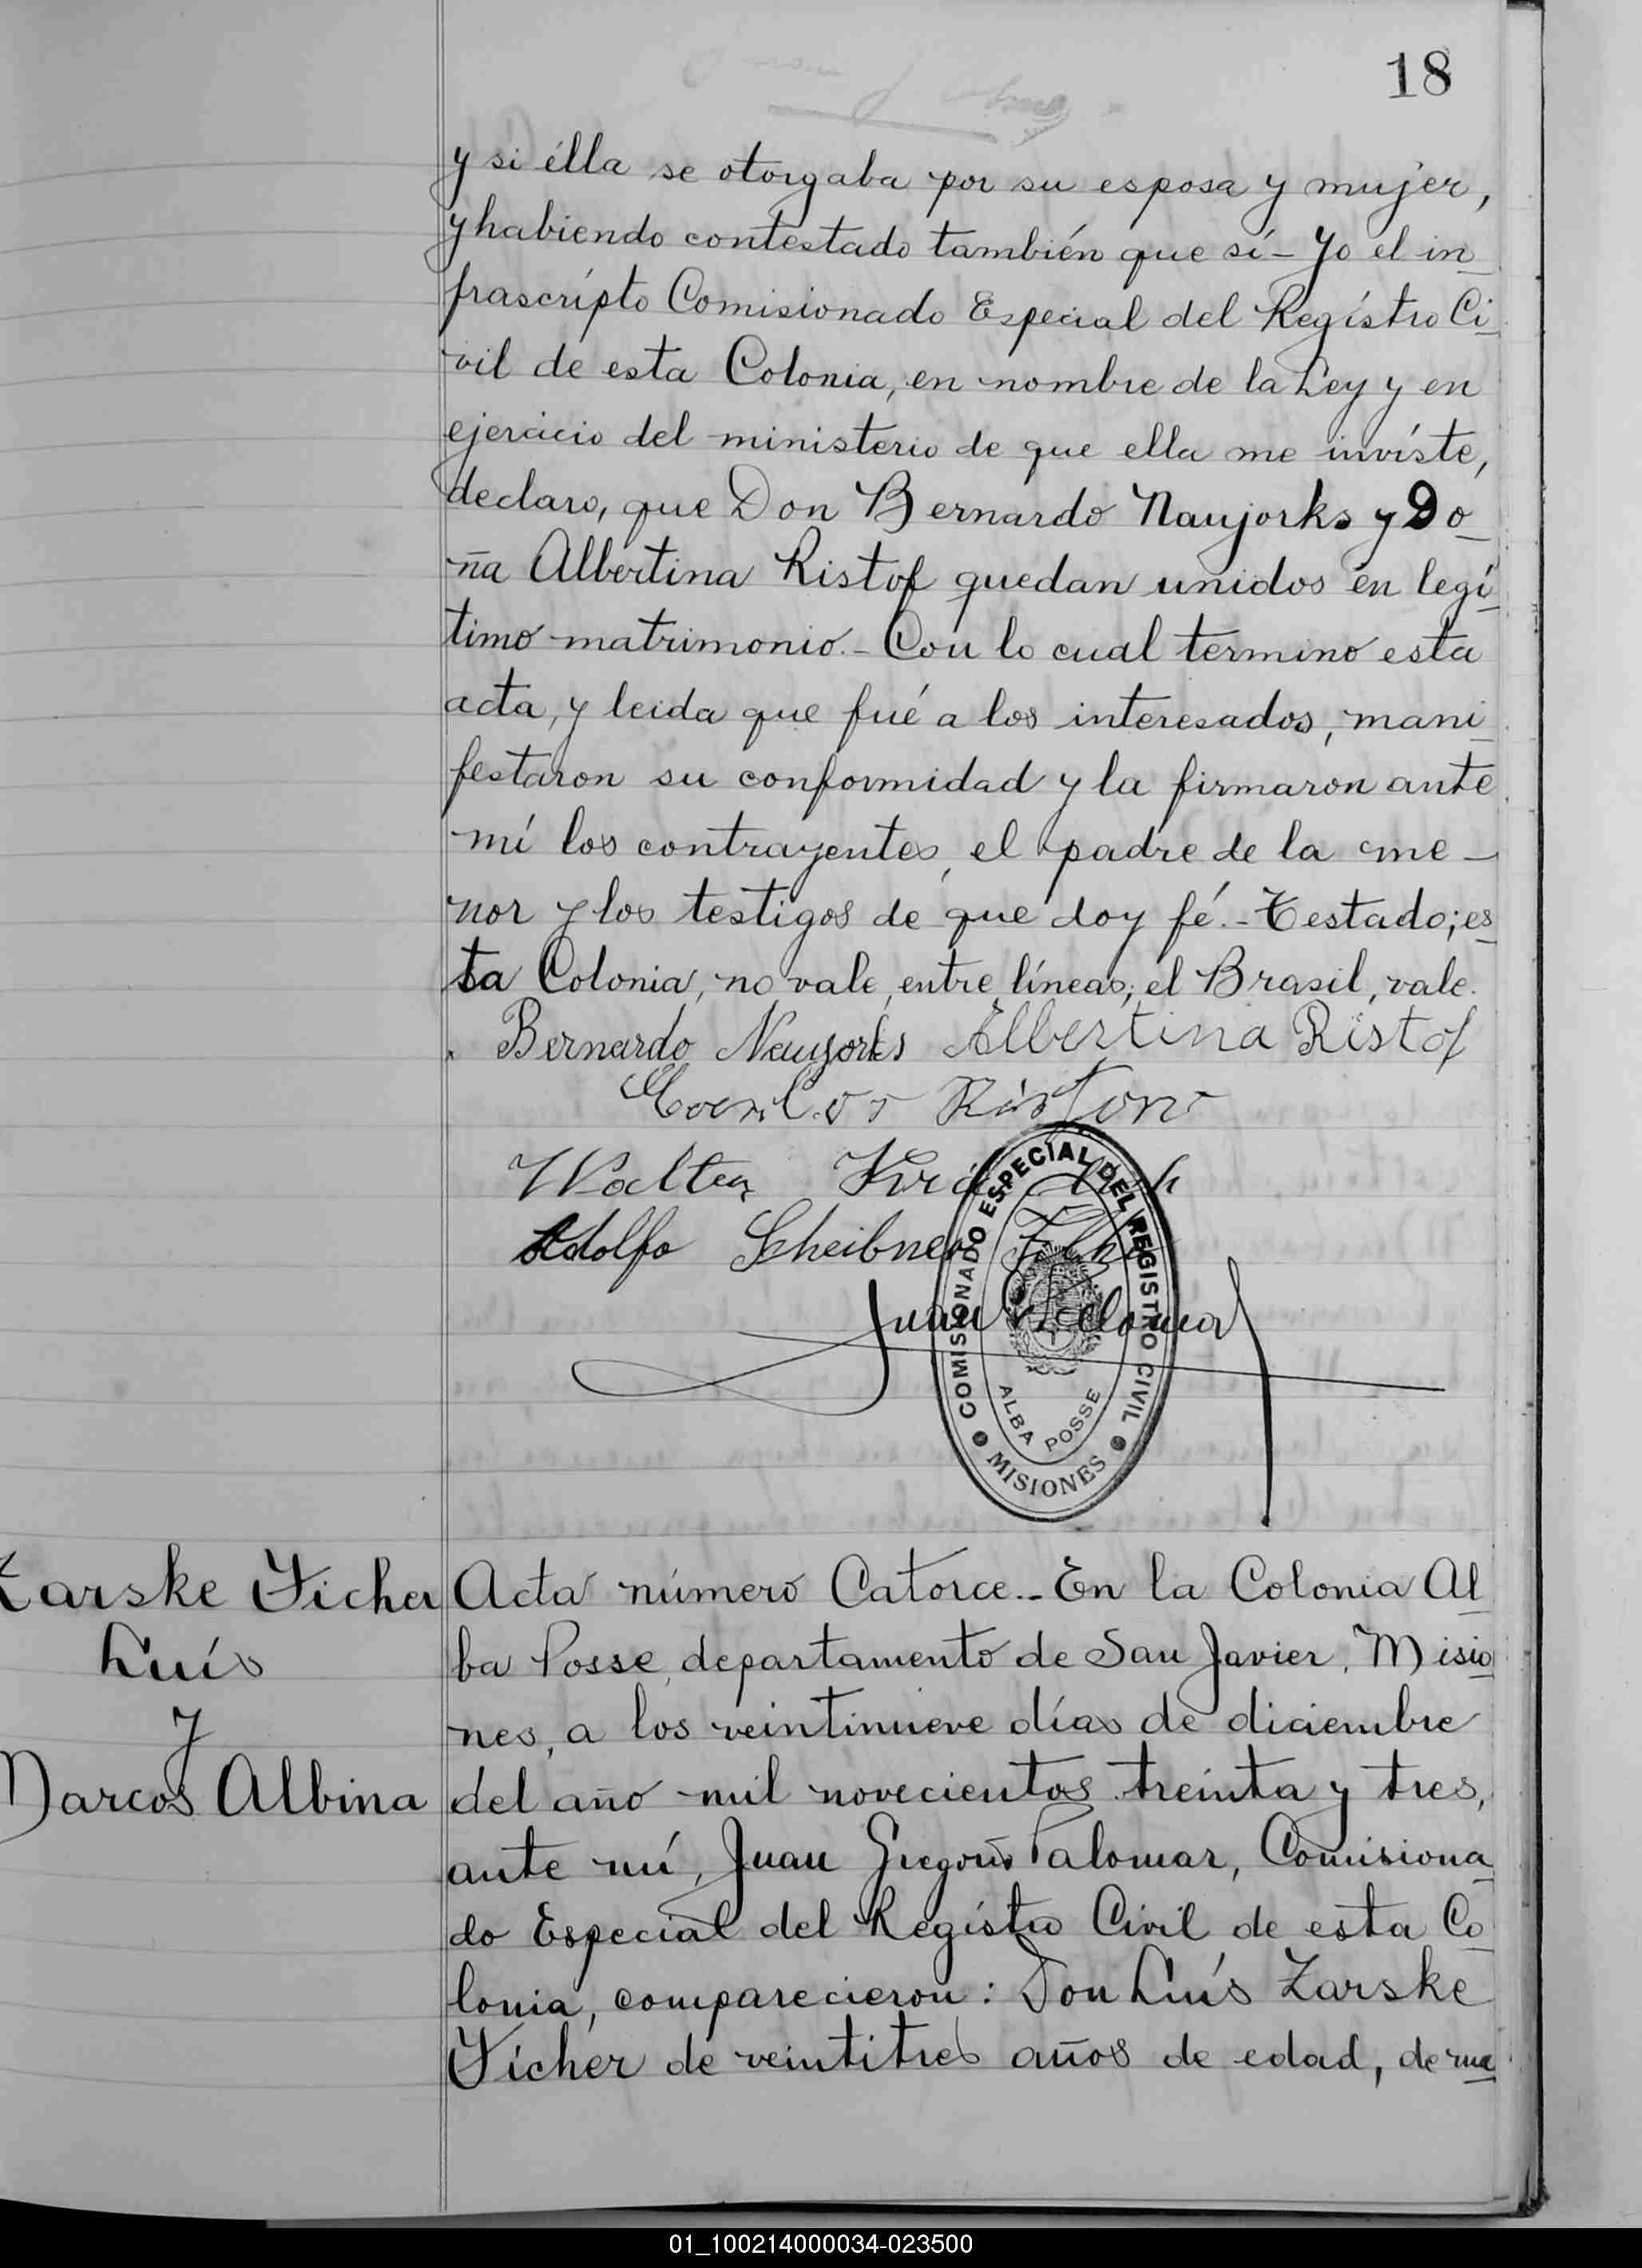 18
y si élla se otorgaba por su esposa y mujer,
y habiendo contestado también que sí - Yo el in
frascrípto Comisionado Especial del Regístro Ci
vil de esta Colonia, en nombre de la Ley y en
ejercicio del ministerio de que ella me invíste,
declaro, que Don Bernardo Naujorks y Do
ña Albertina Ristof quedan unidos en legí
timo matrimonio.- Con lo cual termino esta
acta, y leida que fué a los interesados, mani
festaron su conformidad y la firmaron ante
mí los contrayentes, el padre de la me-
nor y los testigos de que doy fé.- Testado; es
ta Colonia, no vale, entre líneas; el Brasil, vale.
Bernardo Naujorks Albertina Ristof
Walter
Adolfo Scheibner Filho
Juan Palomar
COMISIONADO ESPECIAL DEL REGISTRO CIVIL
ALBA POSSE
MISIONES
Zarske Ficher
Luís
y
Marcos Albina
Acta número Catorce.- En la Colonia Al
ba Posse, departamento de San Javier, Misio
nes, a los veintinueve días de diciembre
del año mil novecientos treinta y tres,
ante mí, Juan Gregorio Palomar, Comisiona
do Especial del Regístro Civil de esta Co
lonia, comparecieron: Don Luís Zarske
Ficher de veintitres años de edad, de na
01_100214000034-023500